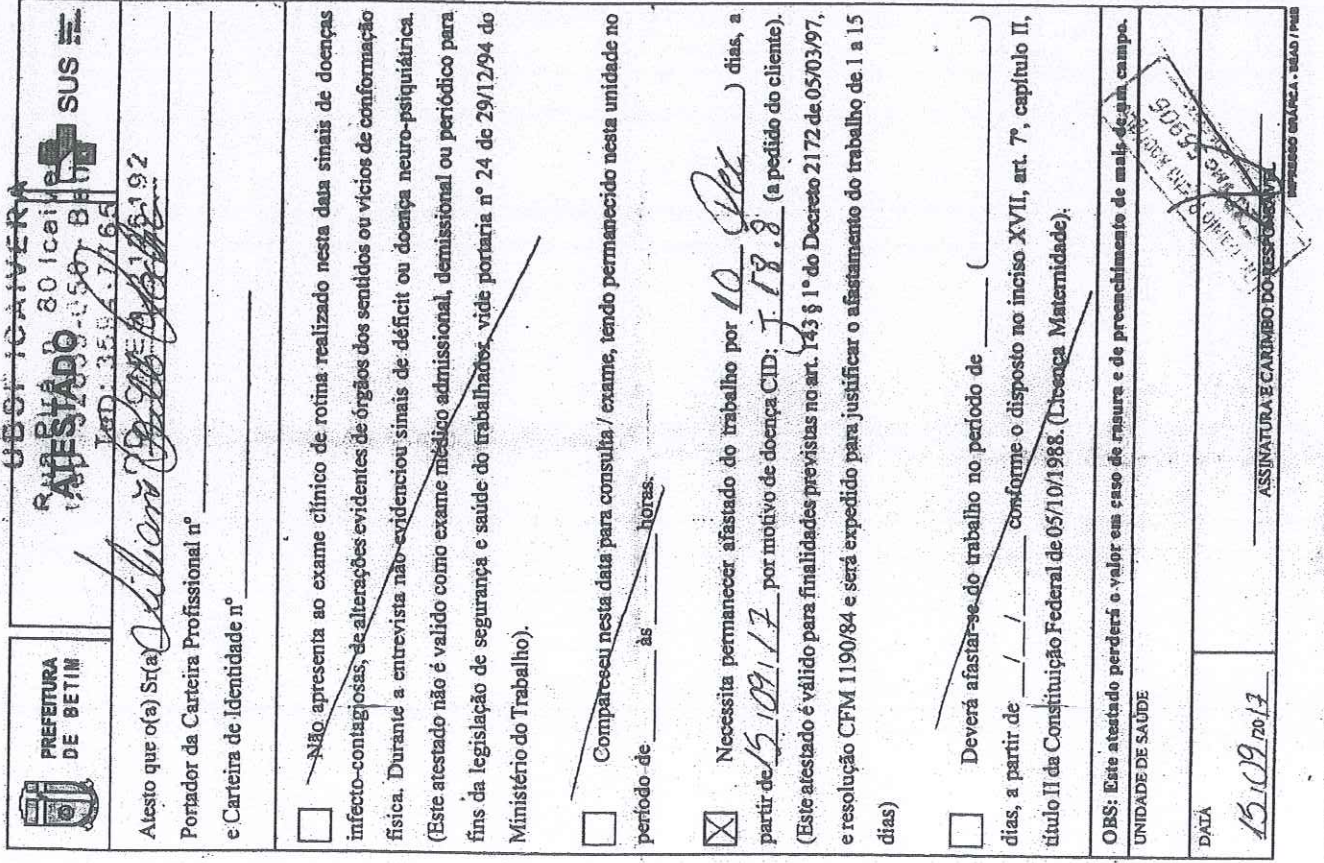 PREFEITURA
DE BETIM
UBSF ICAIVERA
ATESTADO
SUS
Atesto que o(a) Sr(a)
Portador da Carteira Profissional nº
e Carteira de Identidade nº
Não apresenta ao exame clínico de rotina realizado nesta data sinais de doenças
infecto-contagiosas, de alterações evidentes de órgãos dos sentidos ou vícios de conformação
física. Durante a entrevista não evidenciou sinais de déficit ou doença neuro-psiquiátrica.
(Este atestado não é valido como exame médico admissional, demissional ou periódico para
fins da legislação de segurança e saúde do trabalhador, vide portaria nº 24 de 29/12/94 do
Ministério do Trabalho).
Compareceu nesta data para consulta / exame, tendo permanecido nesta unidade no
período de ______ às ______ horas.
Necessita permanecer afastado do trabalho por 10 (Dez) dias, a
partir de 15/09/17 por motivo de doença CID: J.18.8 (a pedido do cliente).
(Este atestado é válido para finalidades previstas no art. 143 § 1º do Decreto 2172 de 05/03/97,
e resolução CFM 1190/84 e será expedido para justificar o afastamento do trabalho de 1 a 15
dias)
Deverá afastar-se do trabalho no período de ______ (______)
dias, a partir de __/__/__ conforme o disposto no inciso XVII, art. 7º, capítulo II,
título II da Constituição Federal de 05/10/1988. (Licença Maternidade).
OBS: Este atestado perderá o valor em caso de rasura e de preenchimento de mais de um campo.
UNIDADE DE SAÚDE
DATA
15/09/2017
ASSINATURA E CARIMBO DO RESPONSÁVEL
IMPRESSO GRÁFICA - SEAD / PMB